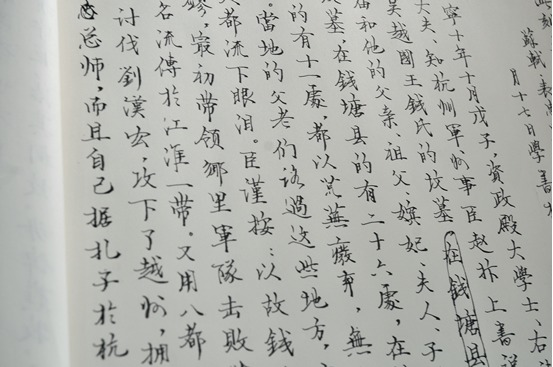 蘇軾·表忠
月十七日學書於
寧十年十月戊子,資政殿大學士、右
大夫、知杭州軍州事臣赵抃上書説
吴越國王錢氏的坟墓在錢塘县
庙和他的父亲、祖父、嫔妃、夫人、子
墓,在钱塘县的有二十六處,在
的有十一處,都以荒蕪廢弃,無
。當地的父老们路過这些地方,
都流下眼泪。臣谨按:以故钱
,最初带领鄉里軍隊击敗
名流傳於江淮一带。又用八都
讨伐劉漢宏,攻下了越州,拥
总师,而且自己据札子於杭